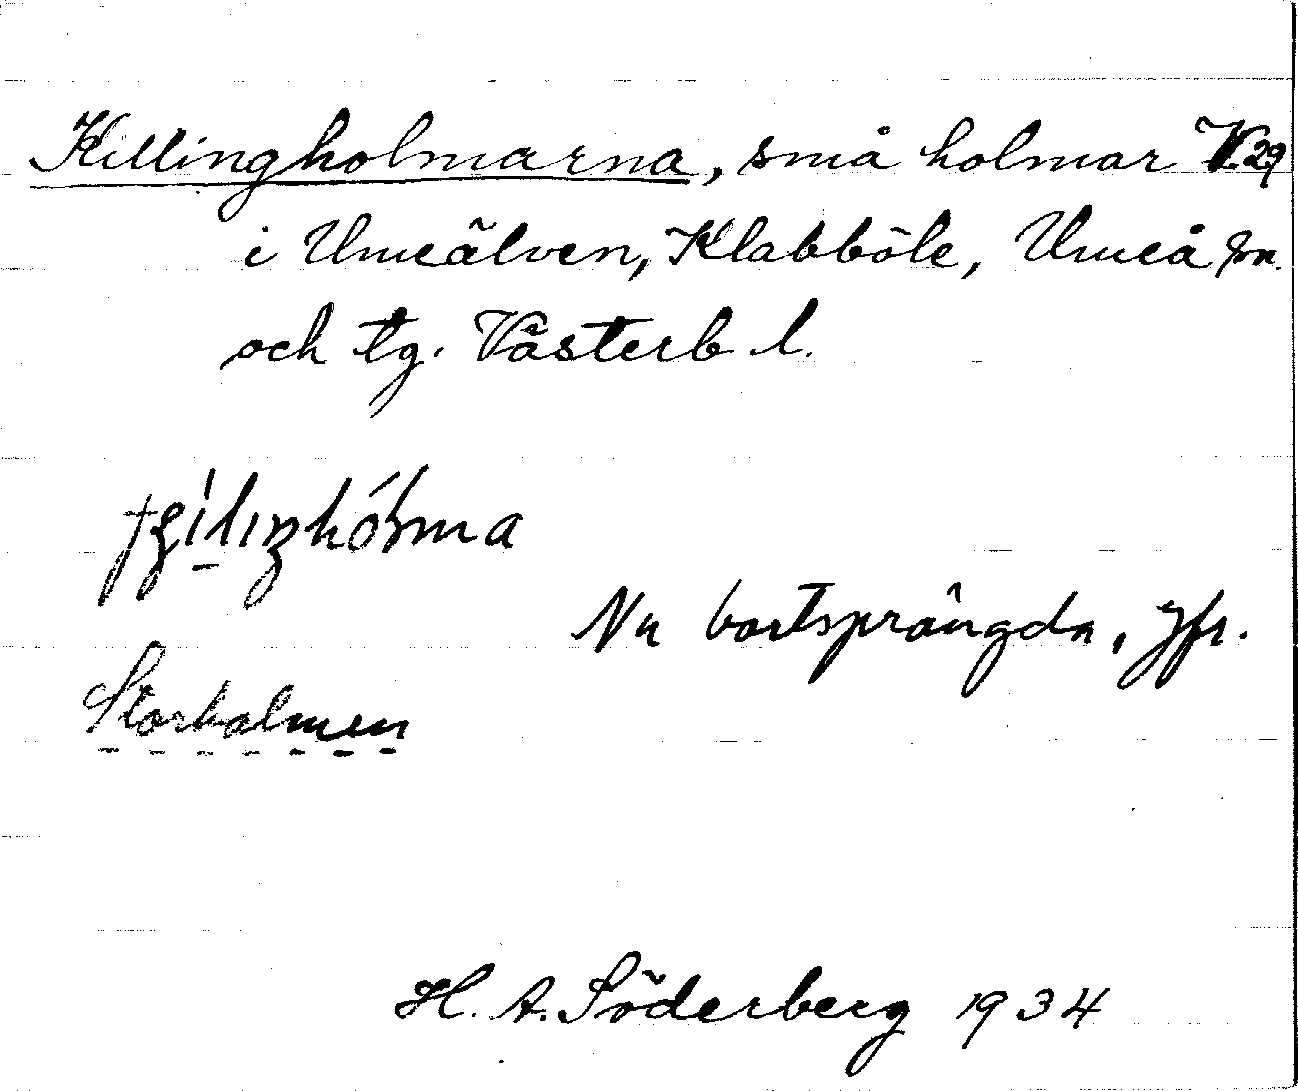 Killingholmarna, små holmar V.29
i Umeälven, Klabböle, Umeå sn.
och tg. Västerb. l.
Nu bortsprängda, jfr.
Storholmen
H. A. Söderberg 1934